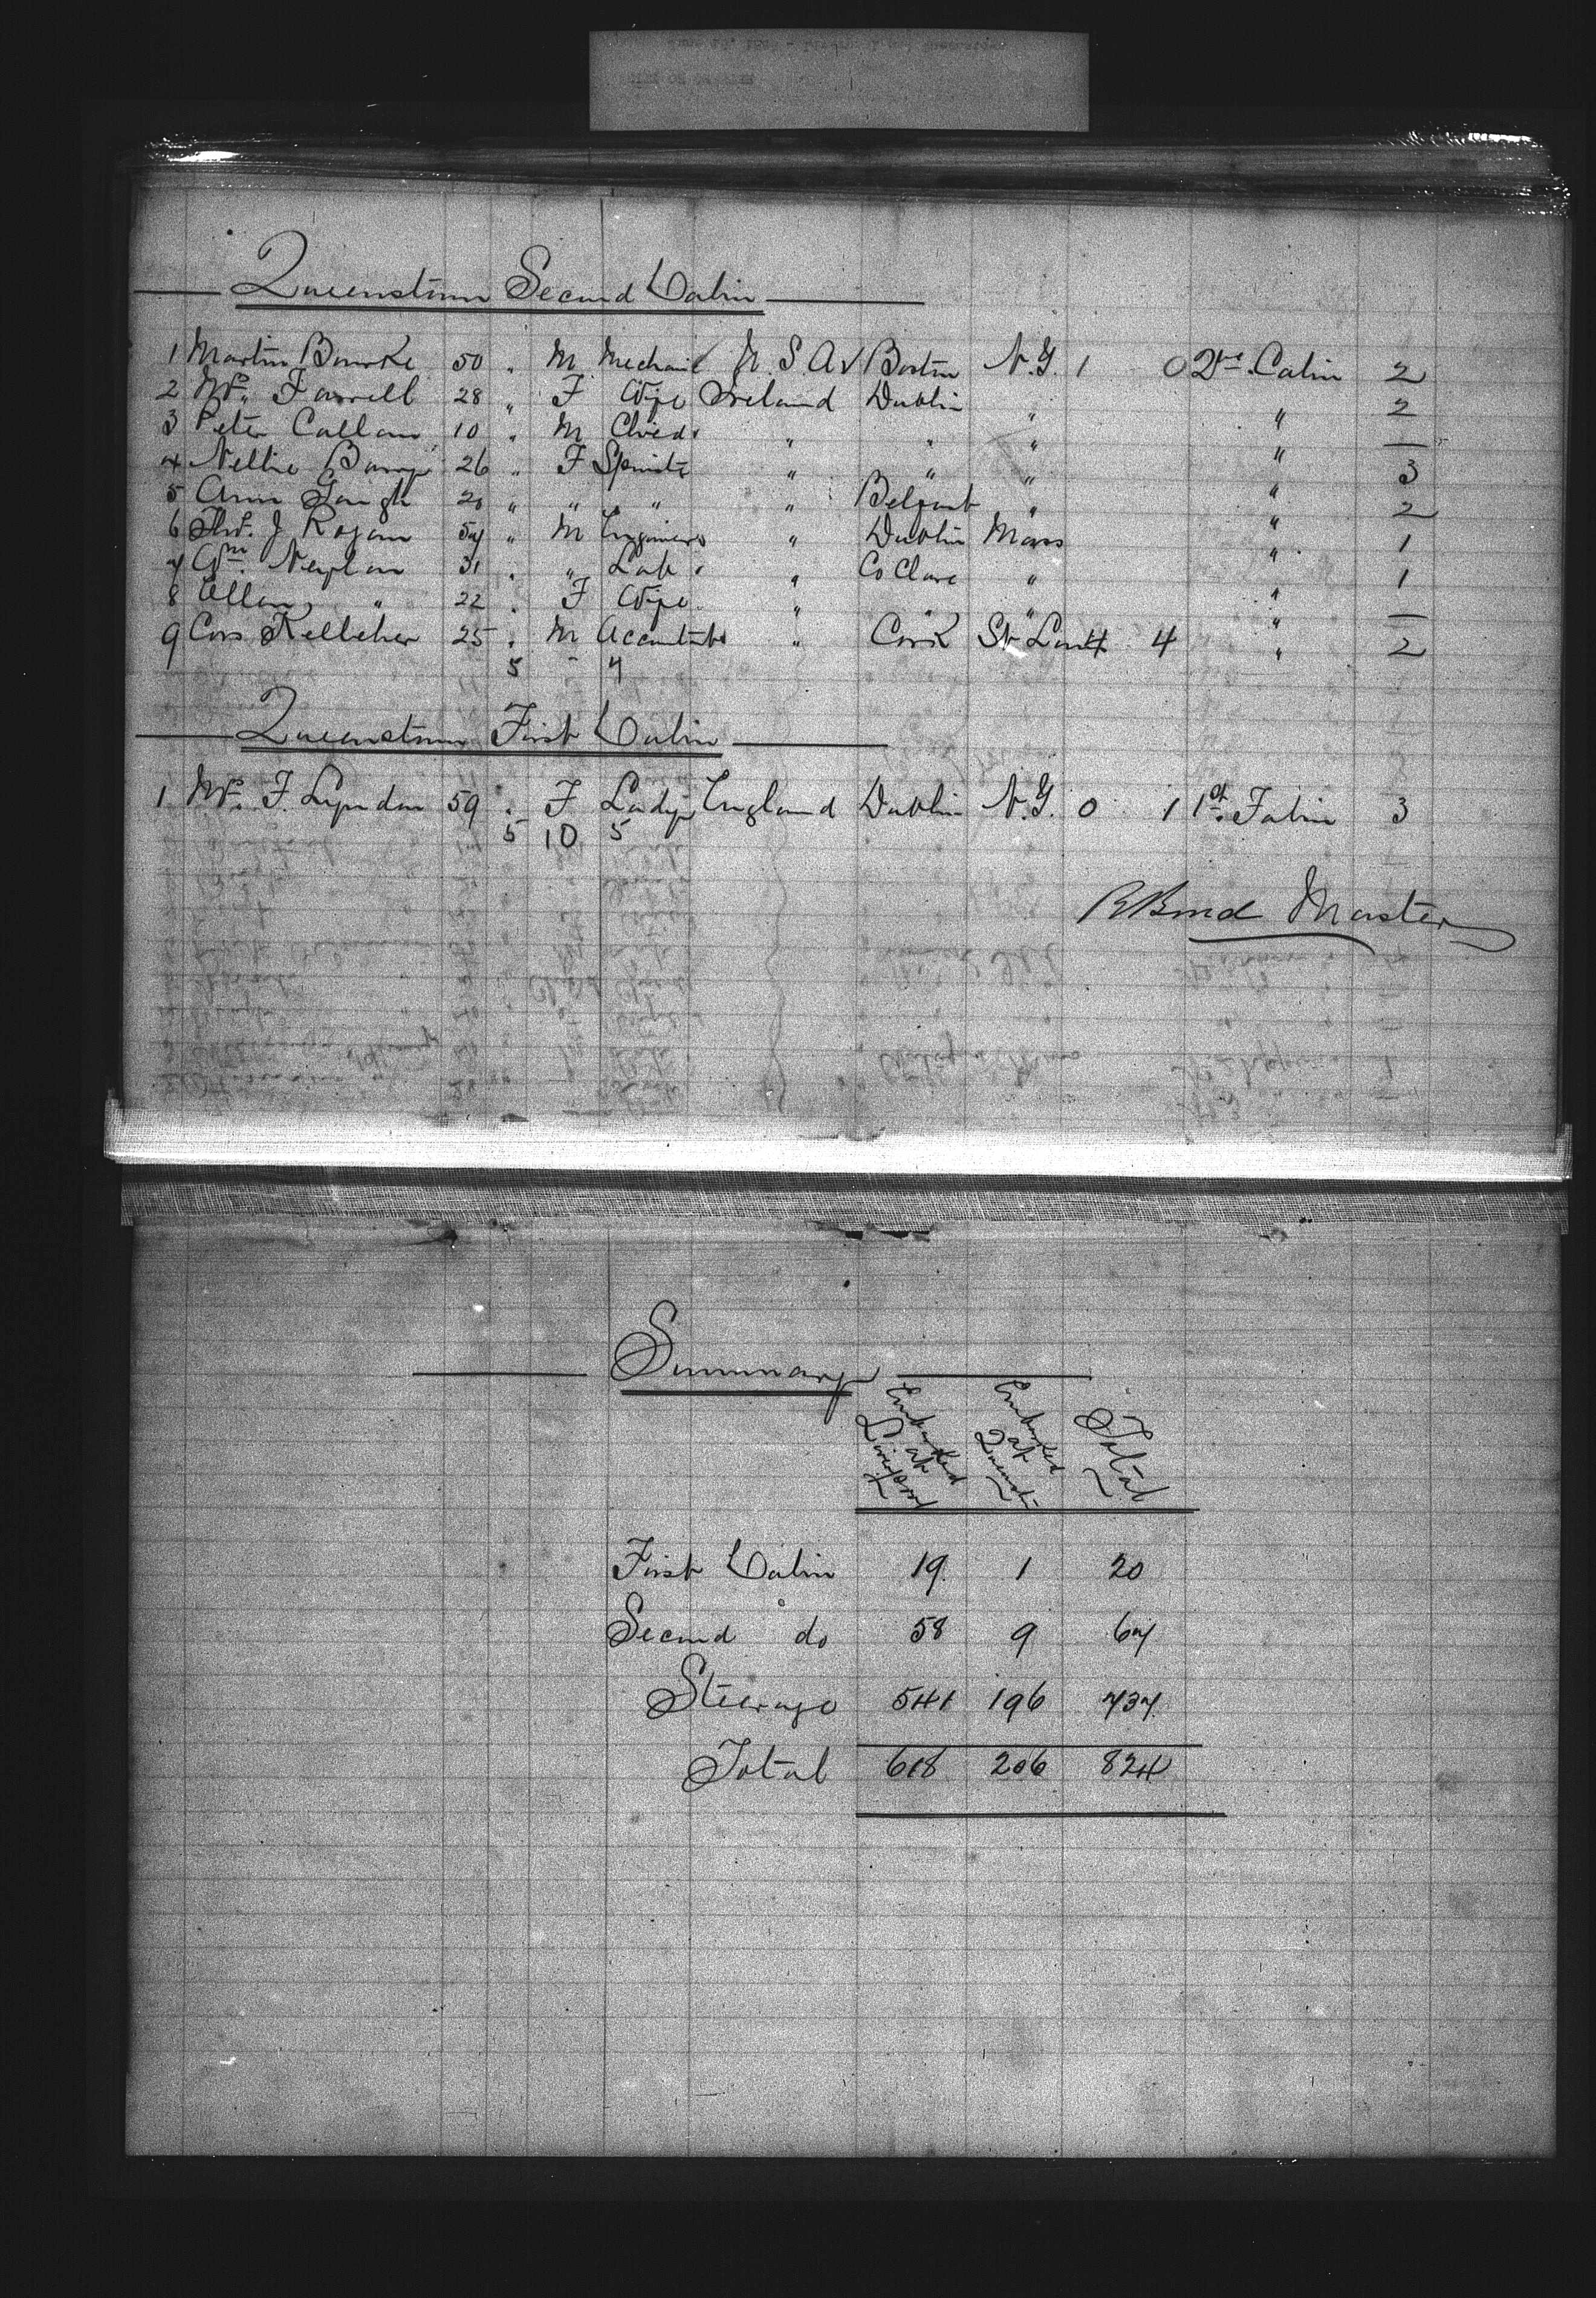 Queenstown Second Cabin
1 Martin Bourke 50 " M Mechanic U.S.A. Boston N.Y. 1 0 2nd Cabin 2
2 Mrs. Farrell 28 " F Wife Ireland Dublin " " 2
3 Peter Callan 10 " M Child " " " " —
4 Nellie 26 " F Spinstr " " " " 3
5 Ann 20 " " " " Belfast " " 2
6 Thos. J. Rogan 54 " M Engineer " Dublin Mass " 1
7 Wm. 31 " " Lab. " Co Clare " " 1
8 Ellen " 22 " F Wife " " " " —
9 Cors Kelleher 25 " M Accountant " Cork St Louis 4 " 2
5 - 4
Queenstown First Cabin
1 Mrs. F. Lyndon 59 " F Lady England Dublin N.Y. 0 1 1st Cabin 3
5 10 5
R Bond Master
Summary
Embarked at Liverpool Embarked at Queenstn Total
First Cabin 19 1 20
Second do 58 9 67
Steerage 541 196 737
Total 618 206 824